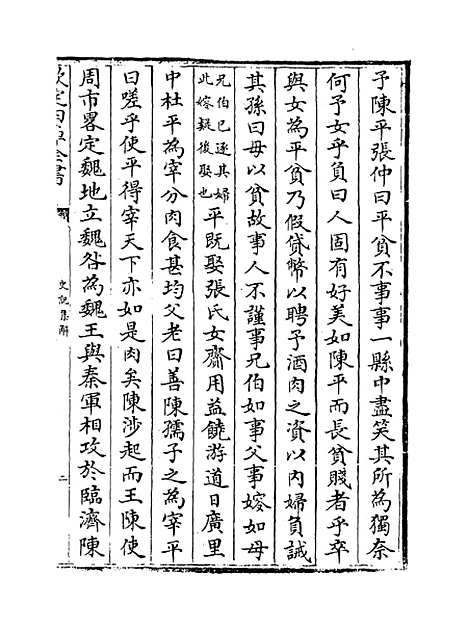 予陳平張仲曰平貧不事事一縣中盡笑其所為獨奈
何予女乎負曰人固有好美如陳平而長貧賤者乎卒
與女為平貧乃假貸幣以聘予酒肉之資以内婦負誡
其孫曰毋以貧故事人不謹事兄伯如事父事嫂如母
兄伯已逐其婦
此嫁疑後娶也
平既娶張氏女齎用益饒游道日廣里
中社平為宰分肉食甚均父老曰善陳孺子之為宰平
曰嗟乎使平得宰天下亦如是肉矣陳涉起而王陳使
周市畧定魏地立魏咎為魏王與秦軍相攻於臨濟陳
欽定四庫全書
史記集解
二